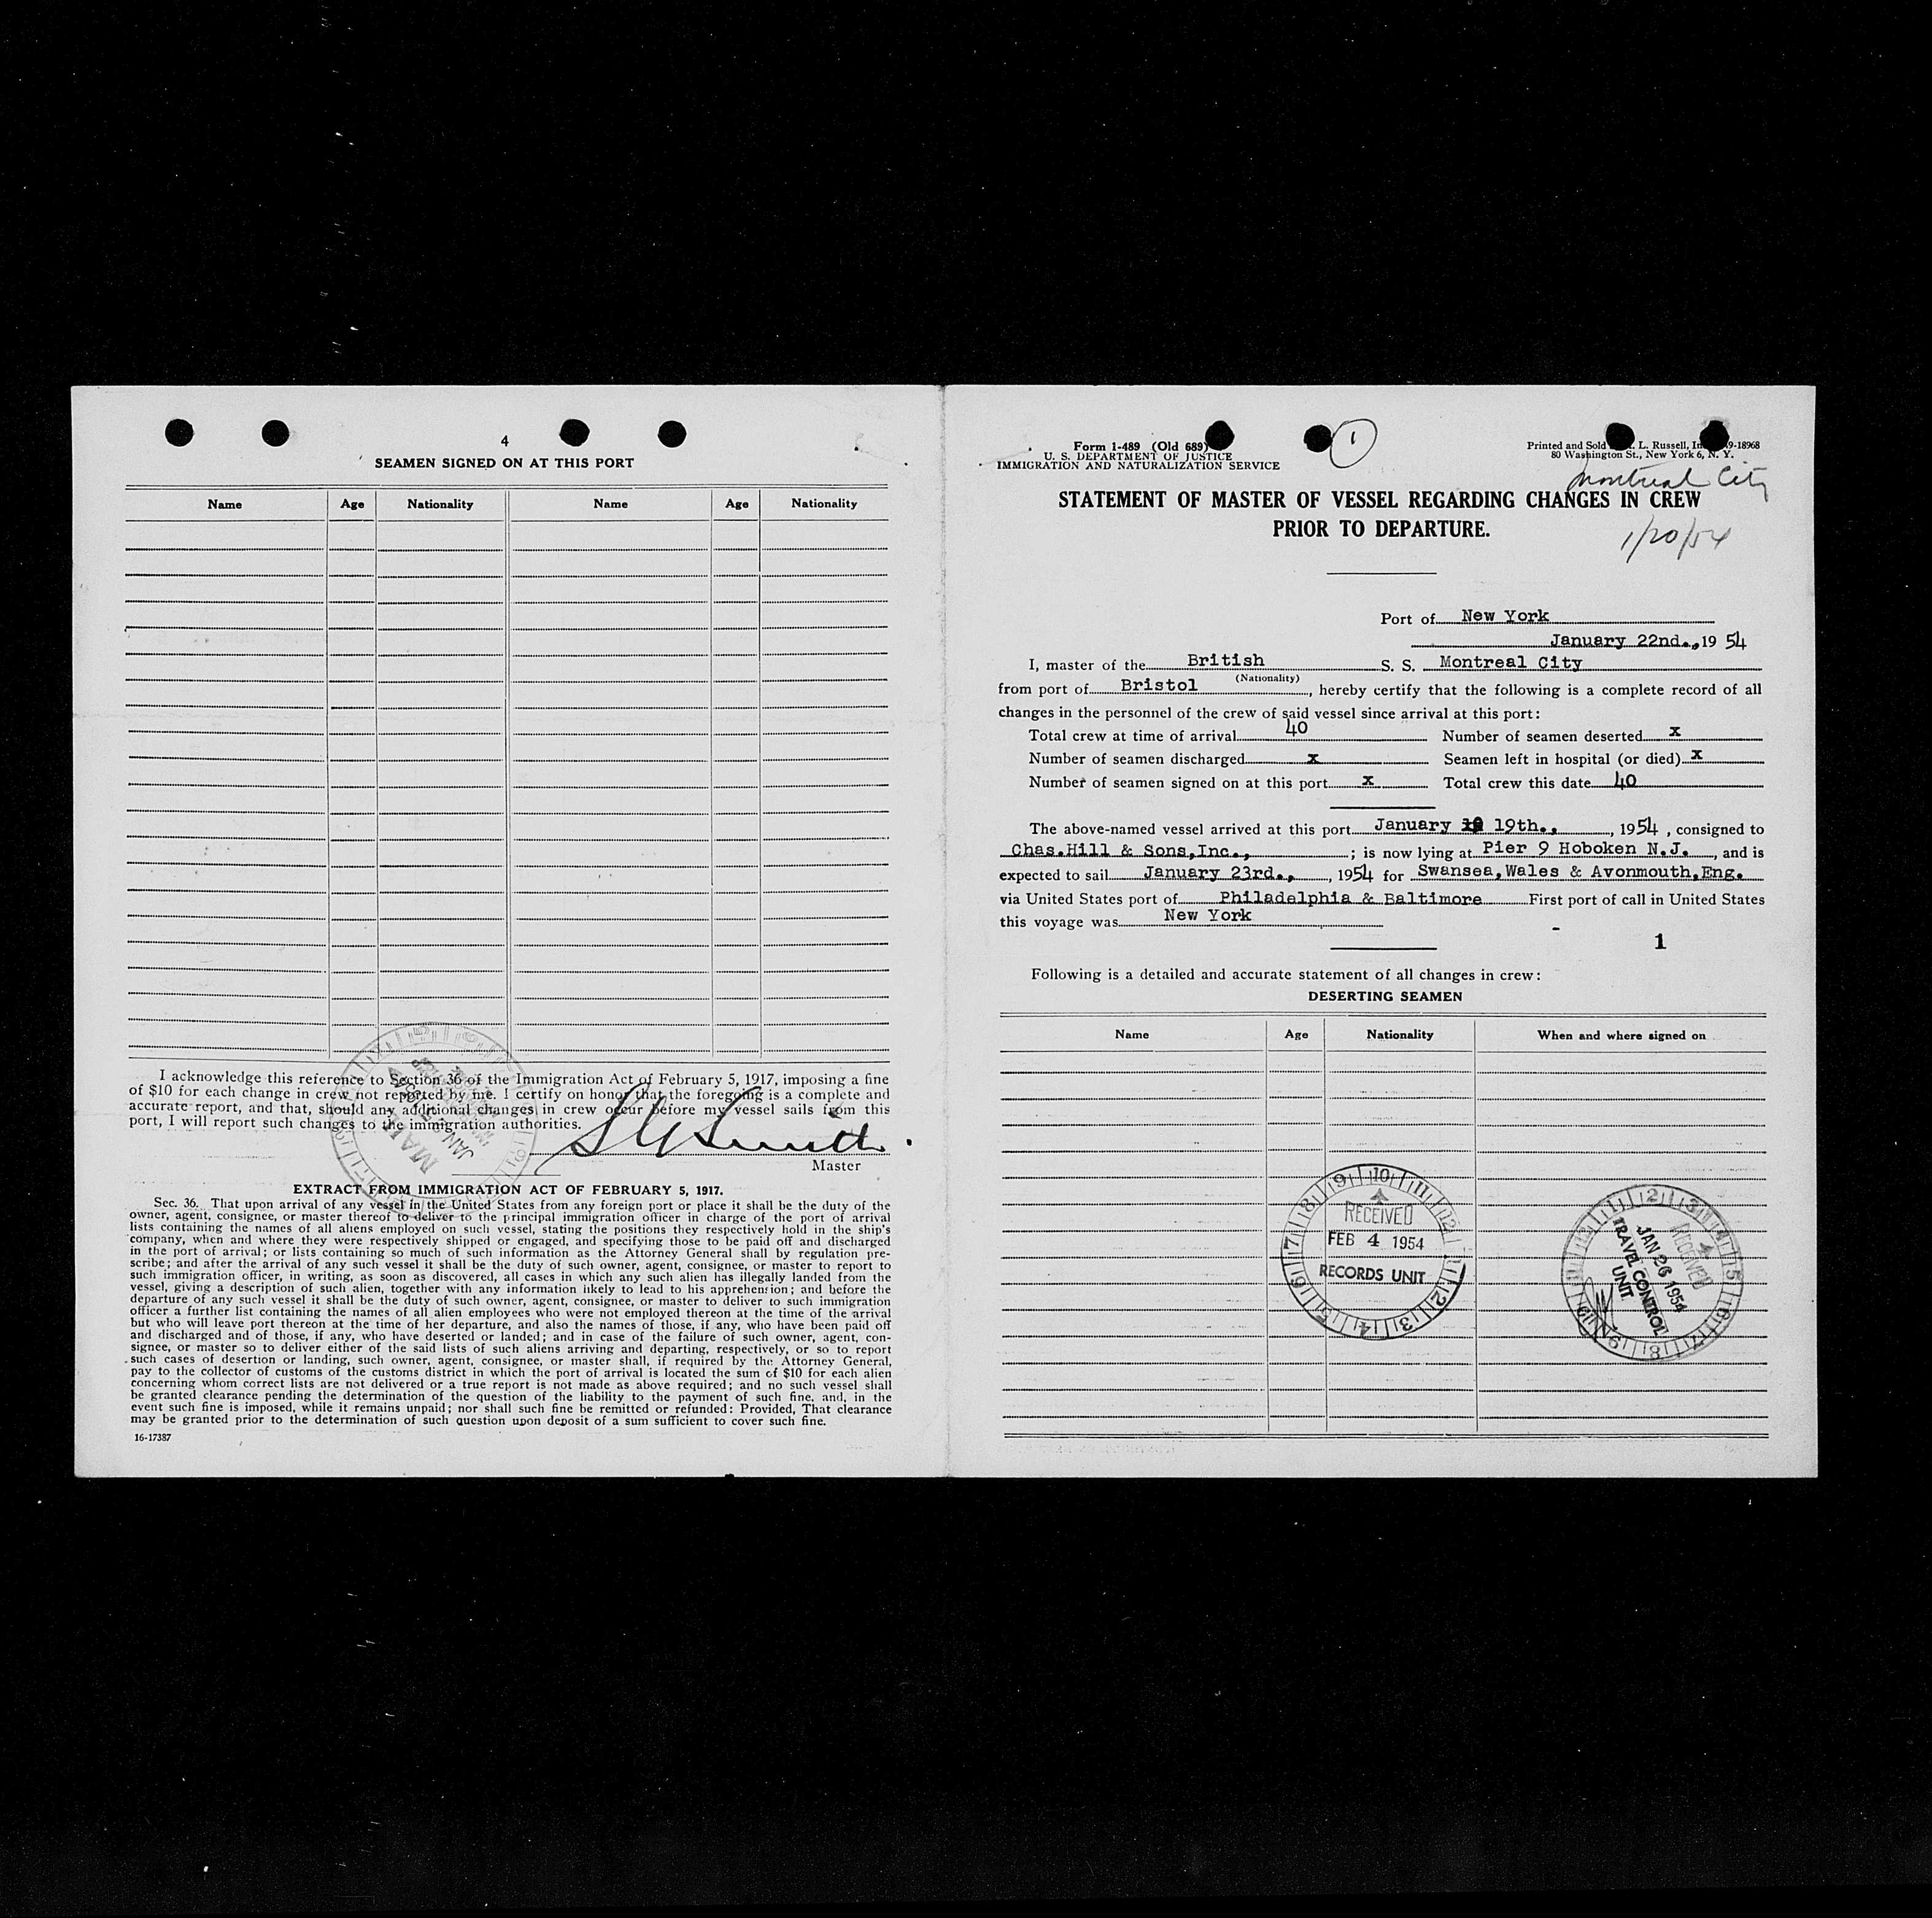 4
SEAMEN SIGNED ON AT THIS PORT
Name Age Nationality Name Age Nationality
I acknowledge this reference to Section 36 of the Immigration Act of February 5, 1917, imposing a fine
of $10 for each change in crew not reported by me. I certify on honor that the foregoing is a complete and
accurate report, and that, should any additional changes in crew occur before my vessel sails from this
port, I will report such changes to the immigration authorities.
Smith
Master
EXTRACT FROM IMMIGRATION ACT OF FEBRUARY 5, 1917.
Sec. 36. That upon arrival of any vessel in the United States from any foreign port or place it shall be the duty of the
owner, agent, consignee, or master thereof to deliver to the principal immigration officer in charge of the port of arrival
lists containing the names of all aliens employed on such vessel, stating the positions they respectively hold in the ship's
company, when and where they were respectively shipped or engaged, and specifying those to be paid off and discharged
in the port of arrival; or lists containing so much of such information as the Attorney General shall by regulation pre-
scribe; and after the arrival of any such vessel it shall be the duty of such owner, agent, consignee, or master to report to
such immigration officer, in writing, as soon as discovered, all cases in which any such alien has illegally landed from the
vessel, giving a description of such alien, together with any information likely to lead to his apprehension; and before the
departure of any such vessel it shall be the duty of such owner, agent, consignee, or master to deliver to such immigration
officer a further list containing the names of all alien employees who were not employed thereon at the time of the arrival
but who will leave port thereon at the time of her departure, and also the names of those, if any, who have been paid off
and discharged and of those, if any, who have deserted or landed; and in case of the failure of such owner, agent, con-
signee, or master so to deliver either of the said lists of such aliens arriving and departing, respectively, or so to report
such cases of desertion or landing, such owner, agent, consignee, or master shall, if required by the Attorney General,
pay to the collector of customs of the customs district in which the port of arrival is located the sum of $10 for each alien
concerning whom correct lists are not delivered or a true report is not made as above required; and no such vessel shall
be granted clearance pending the determination of the question of the liability to the payment of such fine, and, in the
event such fine is imposed, while it remains unpaid; nor shall such fine be remitted or refunded: Provided, That clearance
may be granted prior to the determination of such question upon deposit of a sum sufficient to cover such fine.
16-17387
Form 1-489 (Old 689)
U. S. DEPARTMENT OF JUSTICE
IMMIGRATION AND NATURALIZATION SERVICE
1
Printed and Sold L. Russell, 9-18968
80 Washington St., New York 6, N. Y.
Montreal City
STATEMENT OF MASTER OF VESSEL REGARDING CHANGES IN CREW
PRIOR TO DEPARTURE.
1/20/54
Port of New York
January 22nd., 19 54
I, master of the British S. S. Montreal City
(Nationality)
from port of Bristol, hereby certify that the following is a complete record of all
changes in the personnel of the crew of said vessel since arrival at this port:
Total crew at time of arrival 40 Number of seamen deserted x
Number of seamen discharged x Seamen left in hospital (or died) x
Number of seamen signed on at this port x Total crew this date 40
The above-named vessel arrived at this port January 19th., 1954, consigned to
Chas.Hill & Sons,Inc.,; is now lying at Pier 9 Hoboken N.J., and is
expected to sail January 23rd., 1954 for Swansea,Wales & Avonmouth,Eng.
via United States port of Philadelphia & Baltimore First port of call in United States
this voyage was New York
1
Following is a detailed and accurate statement of all changes in crew:
DESERTING SEAMEN
Name Age Nationality When and where signed on
RECEIVED
FEB 4 1954
RECORDS UNIT
RECEIVED
JAN 26 1954
TRAVEL CONTROL
UNIT